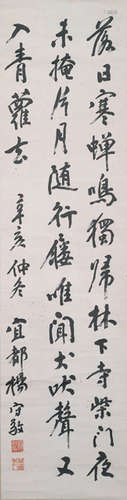 落日寒蟬鳴獨歸林下寺柴门夜
未掩片月随行屨唯聞犬吠聲又
入青蘿去
辛亥仲冬
宜都楊守敬